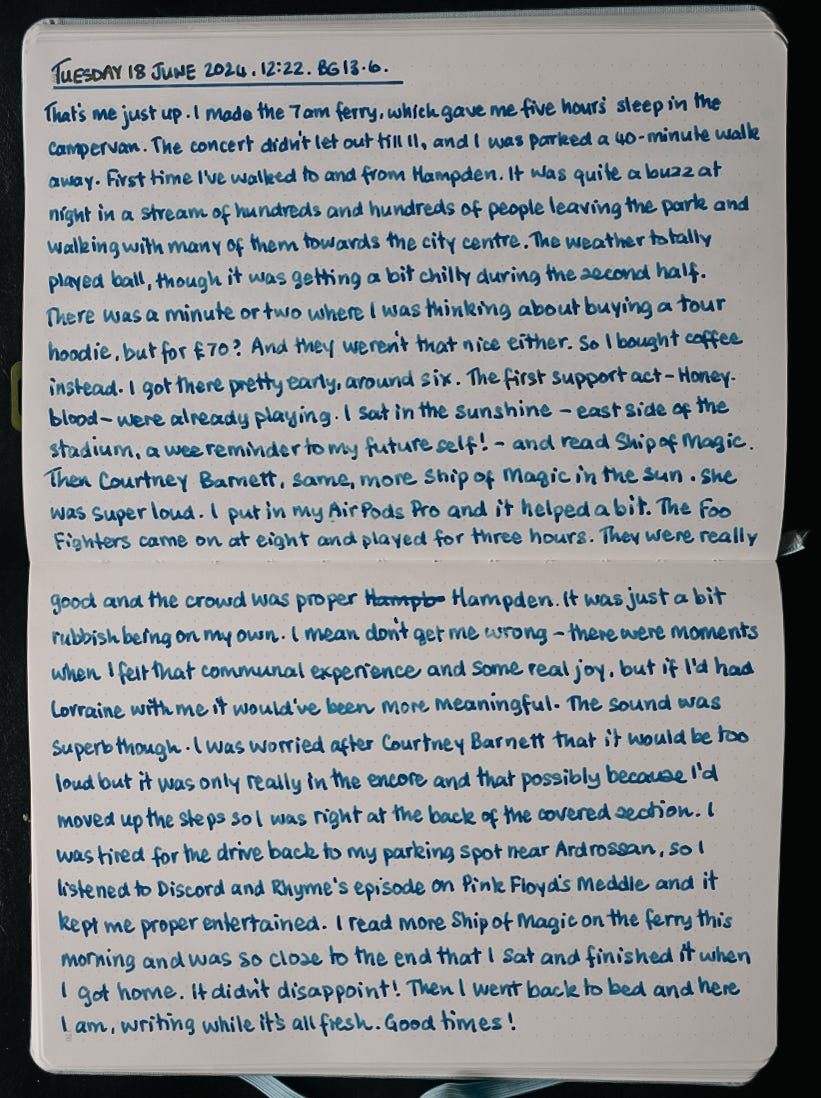 TUESDAY 18 JUNE 2024. 12:22. BG 13.6.
That's me just up. I made the 7am ferry, which gave me five hours' sleep in the
campervan. The concert didn't let out till 11, and I was parked a 40-minute walk
away. First time I've walked to and from Hampden. It was quite a buzz at
night in a stream of hundreds and hundreds of people leaving the park and
walking with many of them towards the city centre. The weather totally
played ball, though it was getting a bit chilly during the second half.
There was a minute or two where I was thinking about buying a tour
hoodie, but for £70? And they weren't that nice either. So I bought coffee
instead. I got there pretty early, around six. The first support act – Honey-
blood – were already playing. I sat in the sunshine – east side of the
stadium, a wee reminder to my future self! – and read Ship of Magic.
Then Courtney Barnett, same, more Ship of Magic in the sun. She
was super loud. I put in my AirPods Pro and it helped a bit. The Foo
Fighters came on at eight and played for three hours. They were really
good and the crowd was proper Hampb Hampden. It was just a bit
rubbish being on my own. I mean don't get me wrong – there were moments
when I felt that communal experience and some real joy, but if I'd had
Lorraine with me it would've been more meaningful. The sound was
superb though. I was worried after Courtney Barnett that it would be too
loud but it was only really in the encore and that possibly because I'd
moved up the steps so I was right at the back of the covered section. I
was tired for the drive back to my parking spot near Ardrossan, so I
listened to Discord and Rhyme's episode on Pink Floyd's Meddle and it
kept me proper entertained. I read more Ship of Magic on the ferry this
morning and was so close to the end that I sat and finished it when
I got home. It didn't disappoint! Then I went back to bed and here
I am, writing while it's all fresh. Good times!